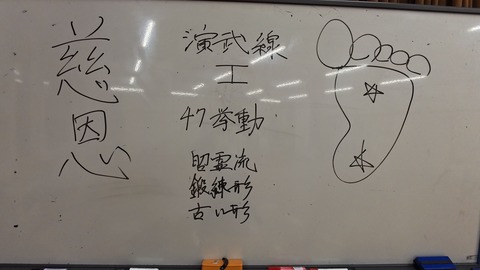 慈恩
演武線
工
47挙動
昭霊流
鍛練形
古い形